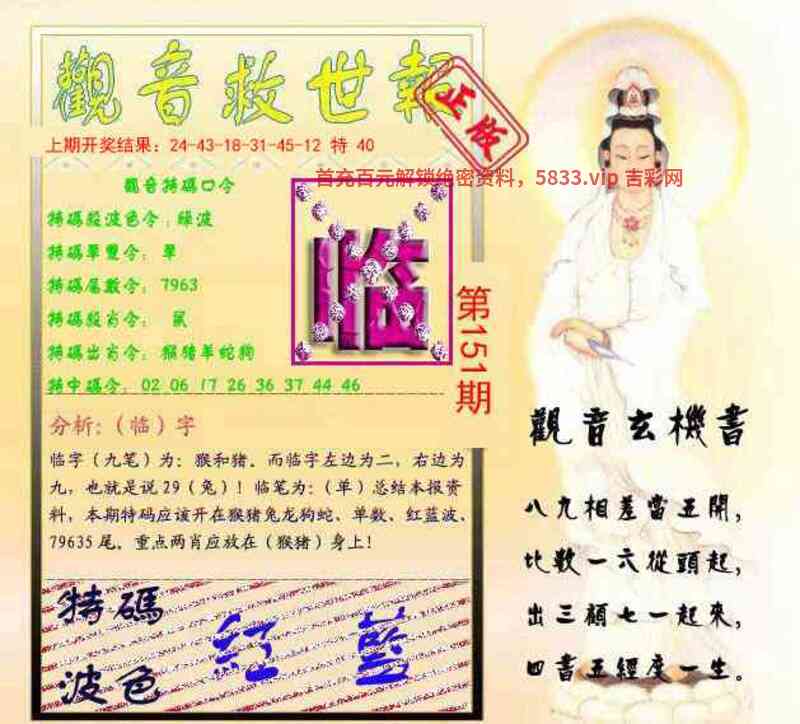 觀音救世報
正版
上期开奖结果：24-43-18-31-45-12 特 40
首充百元解锁绝密资料，5833.vip 吉彩网
觀音特碼口令
特碼殺波色令：綠波
特碼單雙令： 單
特碼尾數令： 7963
特碼殺肖令： 鼠
特碼出肖令： 猴豬羊蛇狗
特中碼令：02 06 17 26 36 37 44 46
临
第151期
分析:（临）字
临字（九笔）为：猴和猪．而临字左边为二，右边为
九，也就是说29（兔）！临笔为:（单）总结本报资
料，本期特码应该开在猴猪兔龙狗蛇、单数、红蓝波、
79635 尾．重点两肖应放在（猴猪）身上!
特碼
波色
紅 藍
觀音玄機書
八九相差當五開，
比數一六從頭起，
出三顧七一起來，
四書五經度一生。